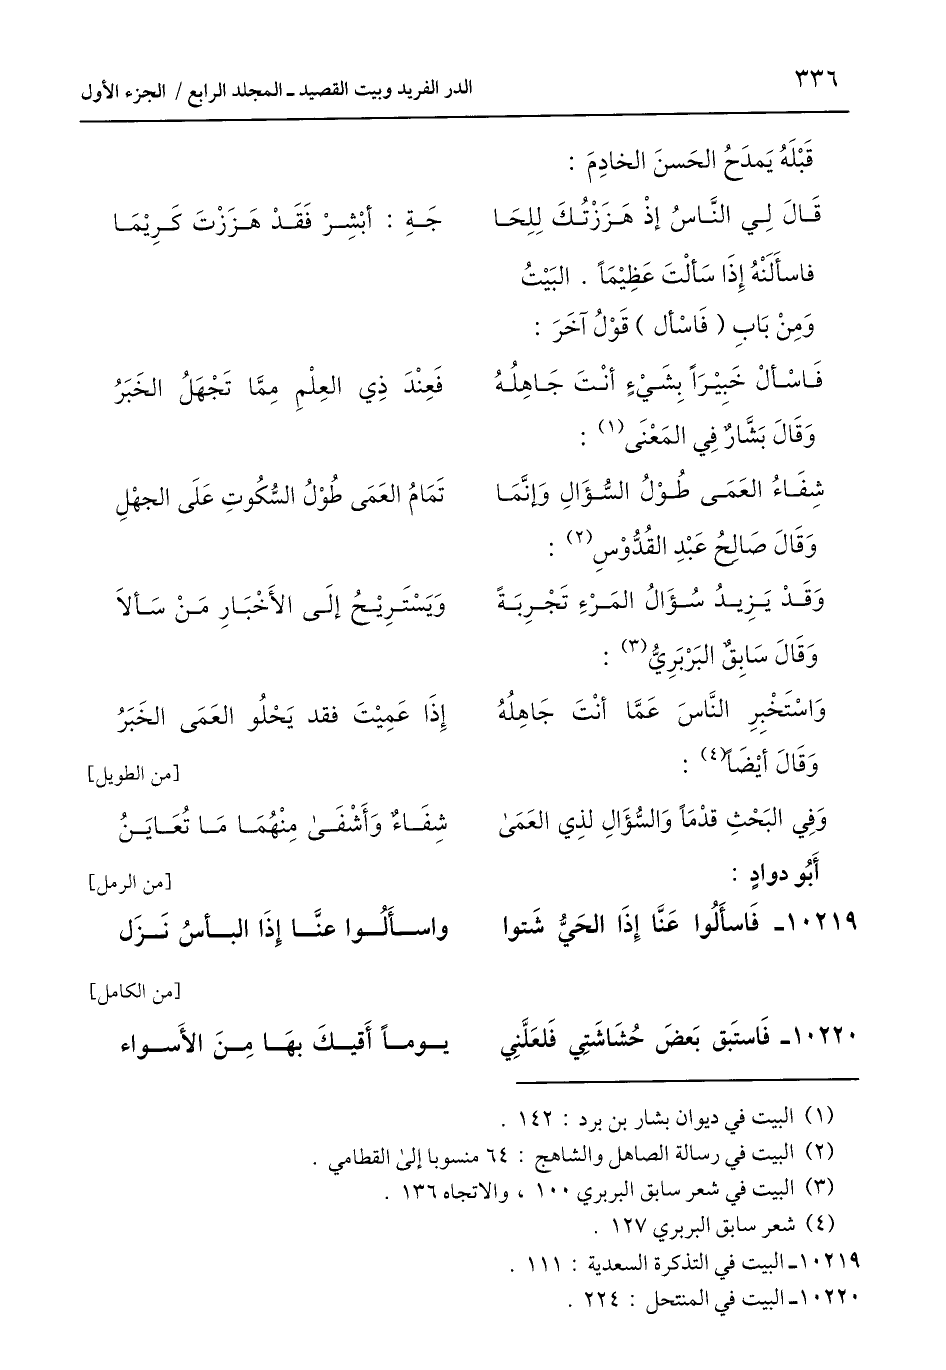 ٣٣٦
الدر الفريد وبيت القصيد ـ المجلد الرابع / الجزء الأول
قَبْلَهُ يَمدَحُ الحَسنَ الخادِمَ :
قَالَ لِي النَّاسُ إذْ هَزَزْتُكَ لِلحَا جَةِ : أبْشِرْ فَقَدْ هَزَزْتَ كَرِيْمَا
فاسألَنْهُ إِذَا سَألْتَ عَظِيْمَاً . البَيْتُ
وَمِنْ بَابِ ( فَاسْأل ) قَوْلُ آخَرَ :
فَاسْألْ خَبِيْرَاً بِشَيْءٍ أنْتَ جَاهِلُهُ فَعِنْدَ ذِي العِلْمِ مِمَّا تَجْهَلُ الخَبَرُ
وَقَالَ بَشَّارٌ فِي المَعْنَى(١) :
شِفَاءُ العَمَى طُوْلُ السُّؤَالِ وَإنَّمَا تَمَامُ العَمَى طُوْلُ السُّكُوتِ عَلَى الجهْلِ
وَقَالَ صَالِحُ عَبْدِ القُدُّوْسِ(٢) :
وَقَدْ يَزِيدُ سُؤَالُ المَرْءِ تَجْرِبَةً وَيَسْتَرِيْحُ إلَى الأَخْبَارِ مَنْ سَألاَ
وَقَالَ سَابِقٌ البَرْبَرِيُّ(٣) :
وَاسْتَخْبِرِ النَّاسَ عَمَّا أنْتَ جَاهِلُهُ إذَا عَمِيْتَ فقد يَجْلُو العَمَى الخَبَرُ
وَقَالَ أيْضَاً(٤) : [من الطويل]
وَفِي البَحْثِ قدْمَاً وَالسُّؤَالِ لذِي العَمَىٰ شِفَاءٌ وَأَشْفَىٰ مِنْهُمَا مَا تُعَايَنُ
أبُو دوادٍ : [من الرمل]
١٠٢١٩ـ فَاسأَلُوا عَنَّا إِذَا الحَيُّ شَتوا واسألُوا عنَّا إذَا البأسُ نَزَل
[من الكامل]
١٠٢٢٠ـ فَاستَبق بَعضَ حُشاشَتِي فَلعَلَّنِي يوماً أَقيكَ بهَا مِنَ الأَسواء
(١) البيت في ديوان بشار بن برد : ١٤٢ .
(٢) البيت في رسالة الصاهل والشاهج : ٦٤ منسوبا إلىٰ القطامي .
(٣) البيت في شعر سابق البربري ١٠٠ ، والاتجاه ١٣٦ .
(٤) شعر سابق البربري ١٢٧ .
١٠٢١٩ـ البيت في التذكرة السعدية : ١١١ .
١٠٢٢٠ـ البيت في المنتحل : ٢٢٤ .